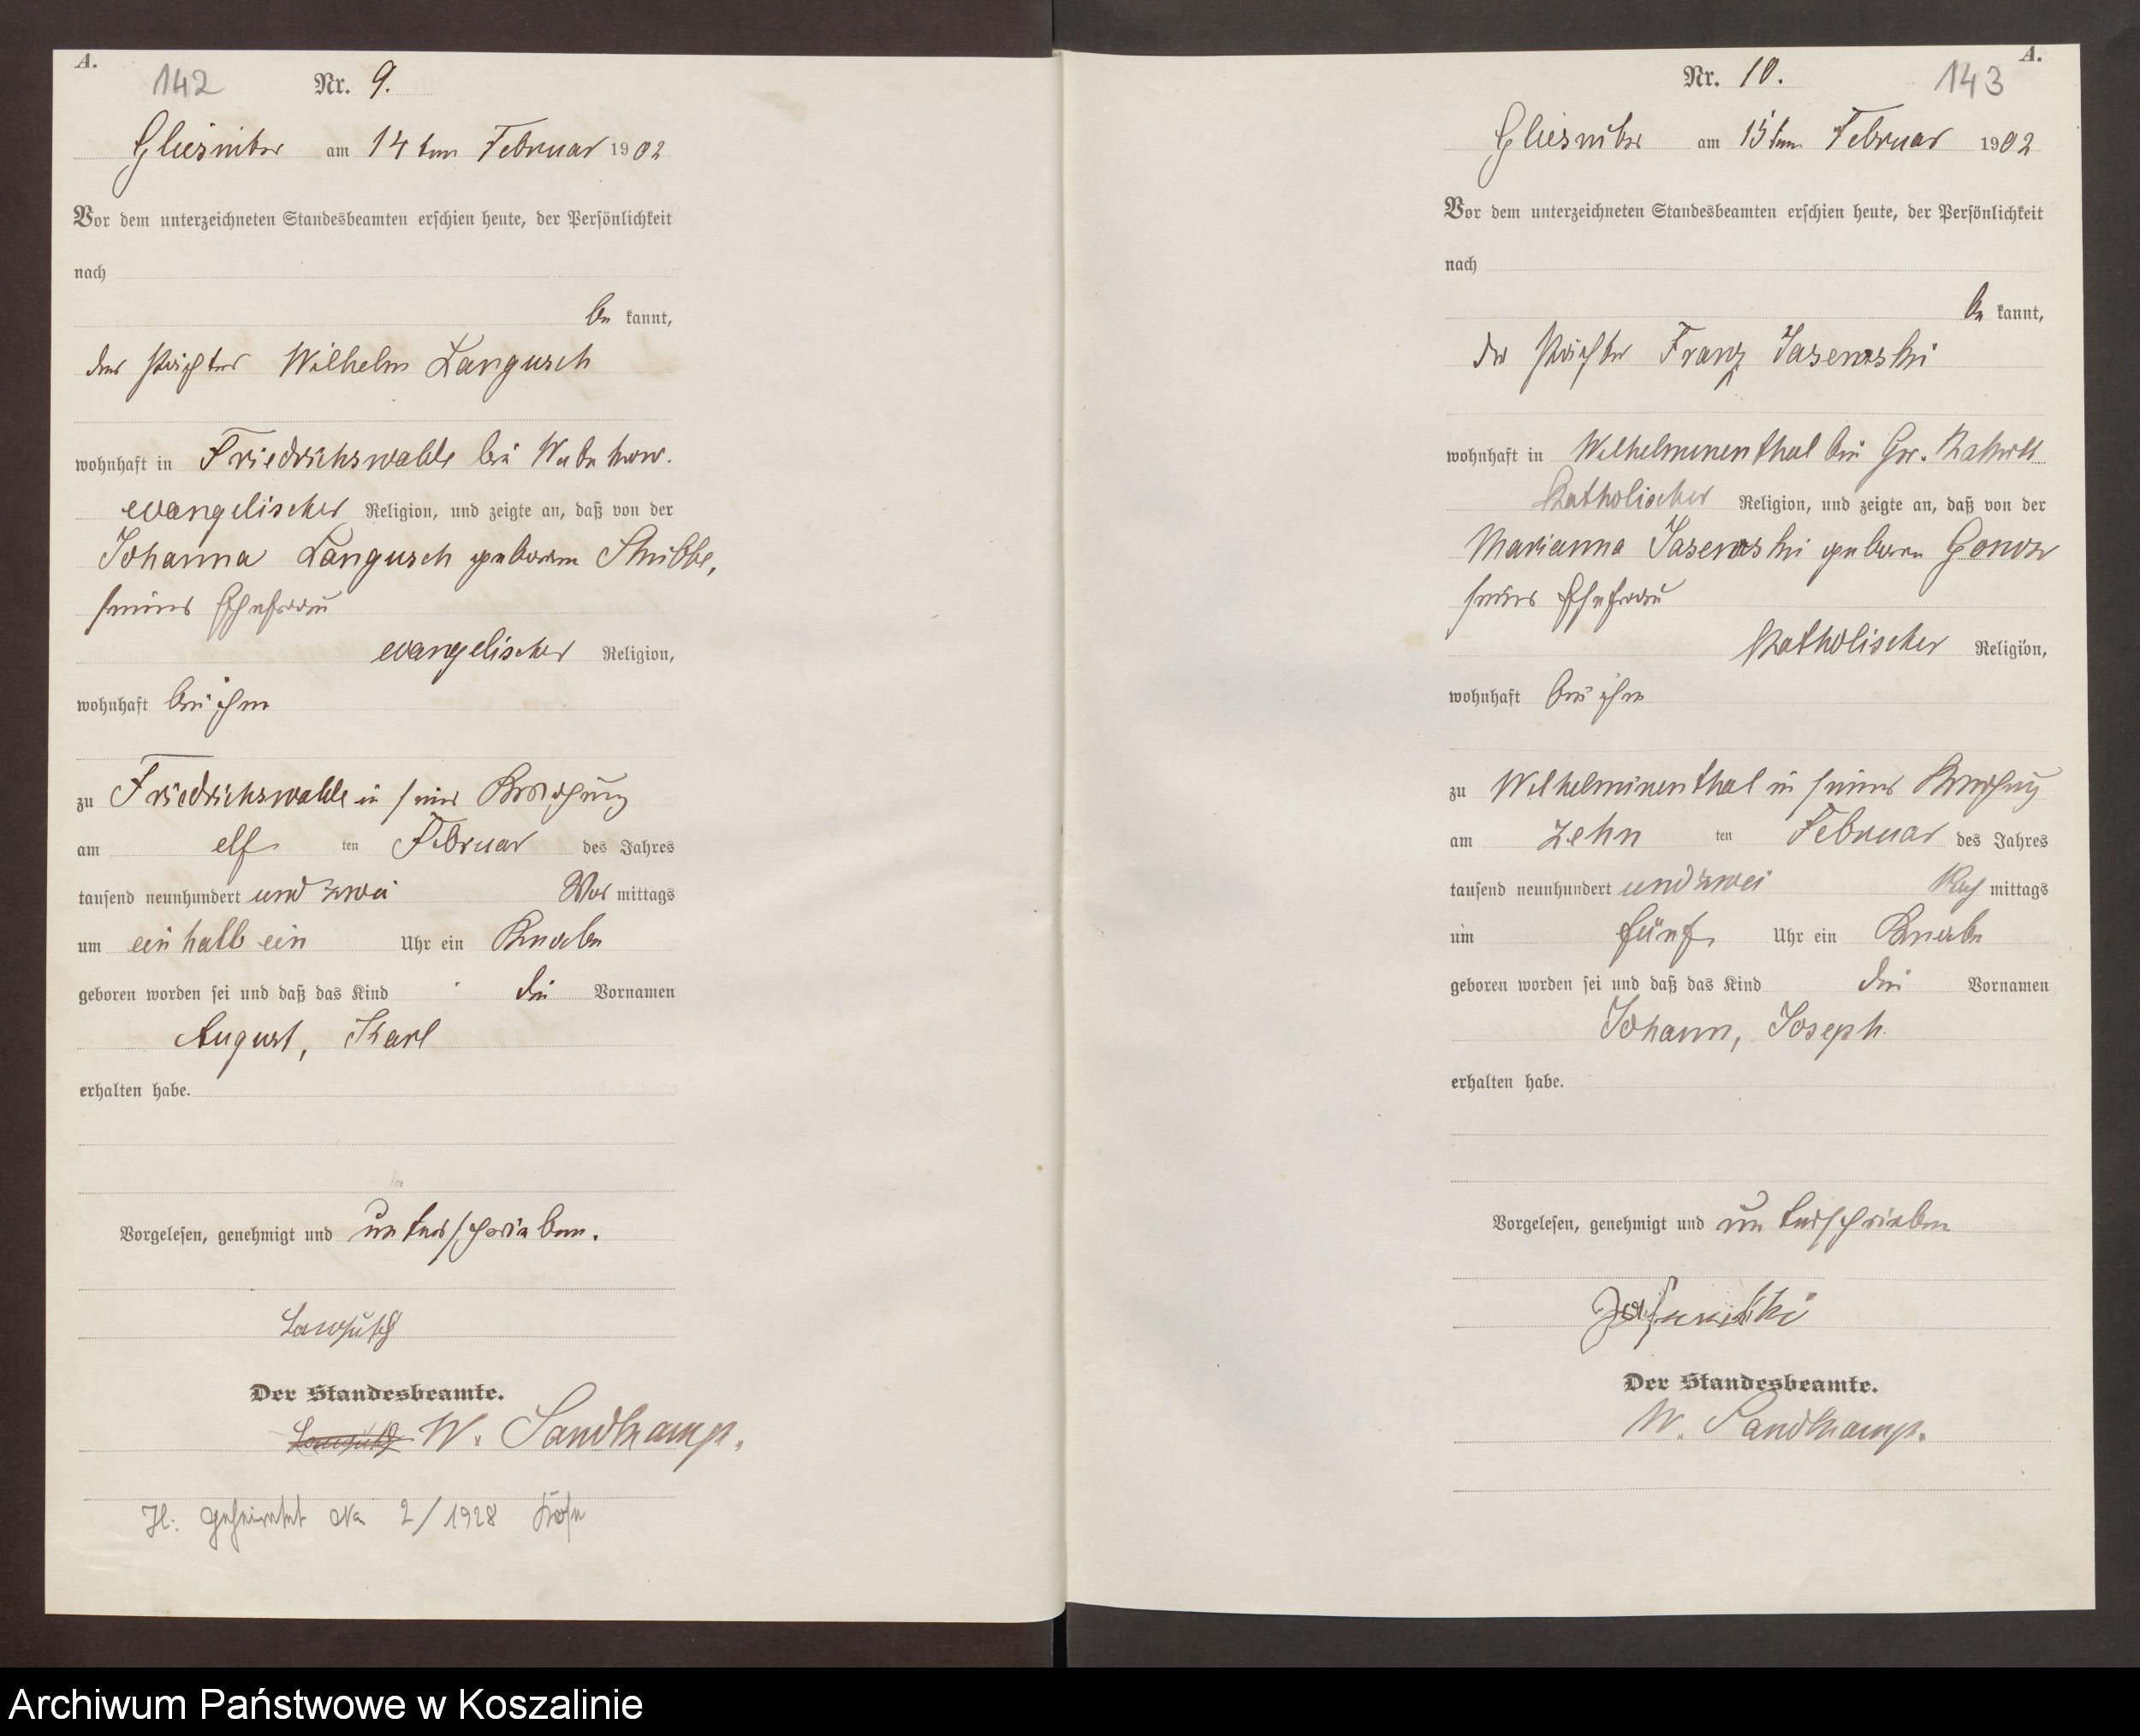 A.
142
Nr. 9.
Gliesnitz am 14ten Februar 1902
Vor dem unterzeichneten Standesbeamten erschien heute, der Persönlichkeit
nach
be kannt,
der Pächter Wilhelm Langusch
wohnhaft in Friedrichswalde bei
evangelischer Religion, und zeigte an, daß von der
Johanna Langusch geboren Stubbe,
seiner Ehefrau
evangelischer Religion,
wohnhaft bei ihm
zu Friedrichswalde in seiner Wohnung
am elf ten Februar des Jahres
tausend neunhundert und zwei Vor mittags
um ein halb ein Uhr ein Knabe
geboren worden sei und daß das Kind die Vornamen
August, Karl
erhalten habe.
Vorgelesen, genehmigt und unterschrieben.
Langusch
Der Standesbeamte.
Langusch W. Sandkamp.
H: geheiratet No 2/1928
A.
143
Nr. 10.
Gliesnitz am 15ten Februar 1902
Vor dem unterzeichneten Standesbeamten erschien heute, der Persönlichkeit
nach
be kannt,
der Pächter Franz Jasenski
wohnhaft in Wilhelminenthal bei Gr.
Katholischer Religion, und zeigte an, daß von der
Marianna geboren
seiner Ehefrau
Katholischer Religion,
wohnhaft bei ihm
zu Wilhelminenthal in seiner Wohnung
am zehn ten Februar des Jahres
tausend neunhundert und zwei Nach mittags
um fünf Uhr ein Knabe
geboren worden sei und daß das Kind die Vornamen
Johann, Joseph
erhalten habe.
Vorgelesen, genehmigt und unterschrieben
Der Standesbeamte.
W. Sandkamp.
Archiwum Państwowe w Koszalinie